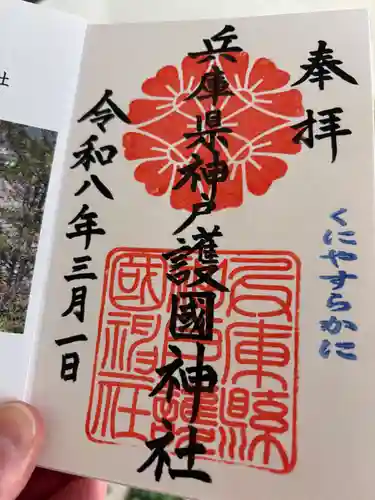 奉拝
くにやすらかに
兵庫県神戸護國神社
兵庫縣
神戸護
國神社
令和八年三月一日
社